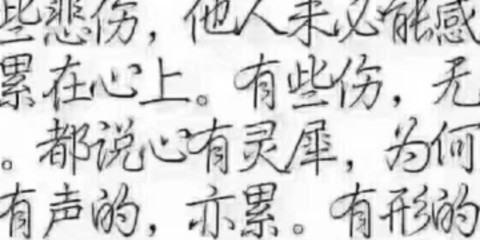 些悲伤，他人未必能感
累在心上。有些伤，无
。都说心有灵犀，为何
有声的，亦累。有形的